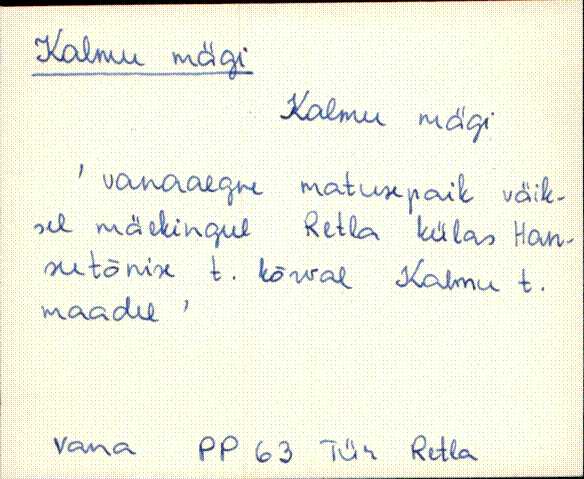 Kalmu mägi
Kalmu mägi
'vanaaegne matusepaik väik-
sel mäekingul Retla külas Han-
sutõnise t. kõrval Kalmu t.
maadel'
vana PP 63 Tür Retla